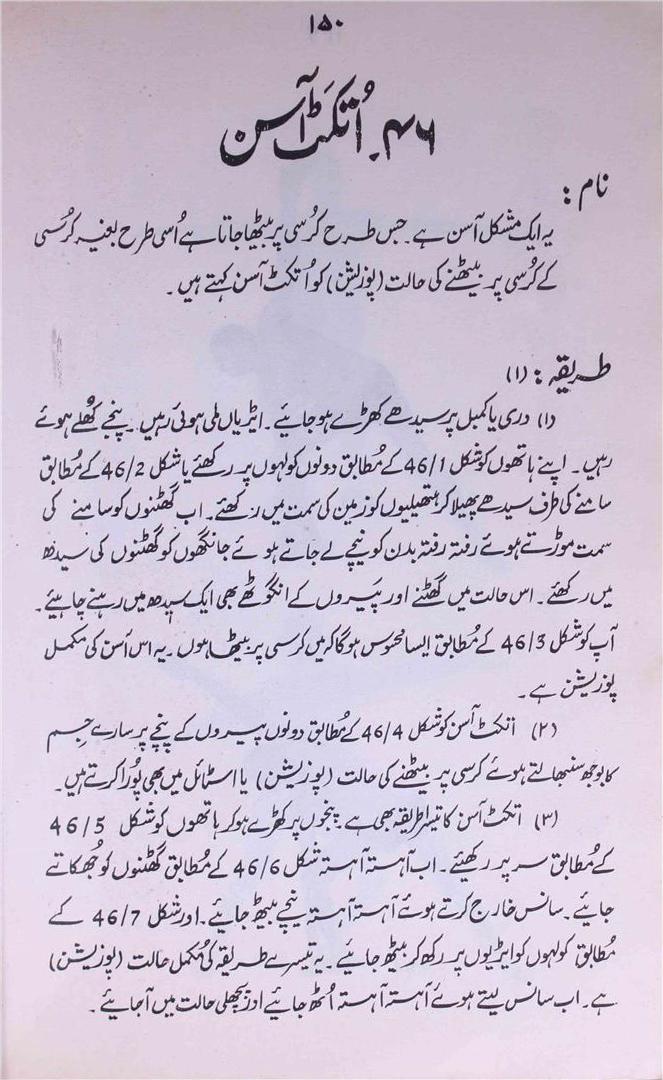 ۱۵۰
۴۶۔ اُتکَٹ آسن
نام :
یہ ایک مشکل آسن ہے۔ جس طرح کُرسی پر بیٹھا جاتا ہے اُسی طرح بغیر کُرسی
کے کُرسی پر بیٹھنے کی حالت (پوزیشن) کو اُتکٹ آسن کہتے ہیں۔
طریقہ : (۱)
(۱) دری یا کمبل پر سیدھے کھڑے ہو جائیے۔ ایڑیاں ملی ہوئی رہیں۔ پنجے کھُلے ہوئے
رہیں۔ اپنے ہاتھوں کو شکل 46/1 کے مُطابق دونوں کولہوں پر رکھئے یا شکل 46/2 کے مُطابق
سامنے کی طرف سیدھے پھیلا کر ہتھیلیوں کو زمین کی سمت میں رکھئے۔ اب گھٹنوں کو سامنے کی
سمت موڑتے ہوئے رفتہ رفتہ بدن کو نیچے لے جاتے ہوئے جانگھوں کو گھٹنوں کی سیدھ
میں رکھئے۔ اس حالت میں گھٹنے اور پَیروں کے انگوٹھے بھی ایک سیدھ میں رہنے چاہیے۔
آپ کو شکل 46/3 کے مُطابق ایسا محسوس ہوگا کہ میں کرسی پر بیٹھا ہوں۔ یہ اس آسن کی مکمل
پوزیشن ہے۔
(۲) اتکٹ آسن کو شکل 46/4 کے مُطابق دونوں پیروں کے پنجے پر سارے جسم
کا بوجھ سنبھالتے ہوئے کرسی پر بیٹھنے کی حالت (پوزیشن) یا اسٹائل میں بھی پُورا کرتے ہیں۔
(۳) اتکٹ آسن کا تیسرا طریقہ بھی ہے۔ پنجوں پر کھڑے ہو کر ہاتھوں کو شکل 46/5
کے مُطابق سر پر رکھیئے۔ اب آہستہ آہستہ شکل 46/6 کے مُطابق گھٹنوں کو جُھکاتے
جائیے۔ سانس خارج کرتے ہوئے آہستہ آہستہ نیچے بیٹھ جائیے۔ اور شکل 46/7 کے
مطابق کولہوں کو ایڑیوں پر رکھ کر بیٹھ جائیے۔ یہ تیسرے طریقہ کی مُکمل حالت (پوزیشن)
ہے۔ اب سانس لیتے ہوئے آہستہ آہستہ اُٹھ جائیے اور پچھلی حالت میں آ جائیے۔